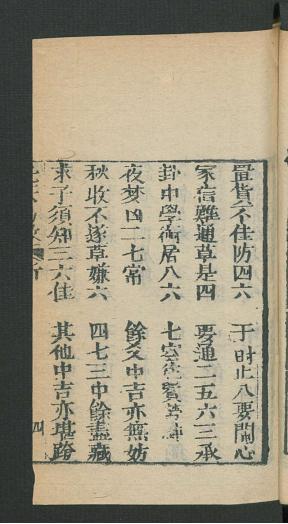 置貨不佳防四六 于時止八要開心
家信難通草是四 要通二五六三承
卦中學術居八六 七
夜梦凶二七常 餘爻中吉亦無妨
秋收不遂草嫌六 四七三中餘盡藏
求子須知三六佳 其他中吉亦堪跨
四